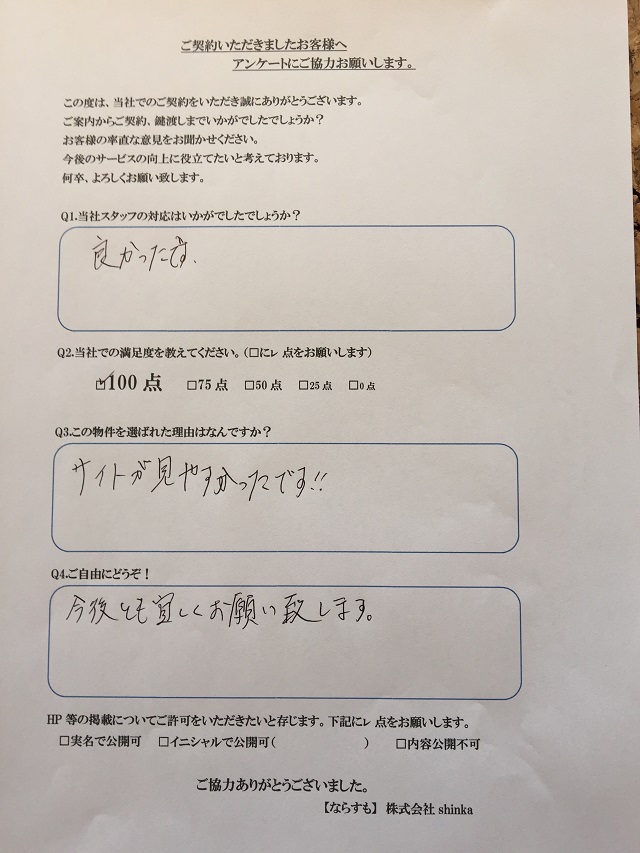 ご契約いただきましたお客様へ
アンケートにご協力お願いします。
この度は、当社でのご契約をいただき誠にありがとうございます。
ご案内からご契約、鍵渡しまでいかがでしたでしょうか？
お客様の率直な意見をお聞かせください。
今後のサービスの向上に役立てたいと考えております。
何卒、よろしくお願い致します。
Q1.当社スタッフの対応はいかがでしたでしょうか？
良かったです.
Q2.当社での満足度を教えてください。（□にレ点をお願いします）
☑100点 □75点 □50点 □25点 □0点
Q3.この物件を選ばれた理由はなんですか？
サイトが見やすかったです!!
Q4.ご自由にどうぞ！
今後とも宜しくお願い致します。
HP等の掲載についてご許可をいただきたいと存じます。下記にレ点をお願いします。
□実名で公開可 □イニシャルで公開可（ ） □内容公開不可
ご協力ありがとうございました。
【ならすも】 株式会社 shinka